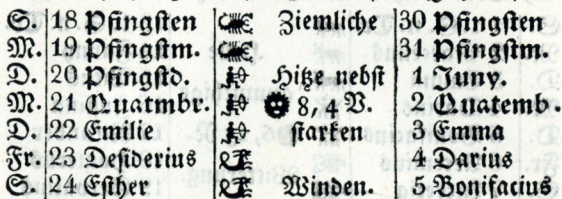 S. 18 Pfingsten Ziemliche 30 Pfingsten
M. 19 Pfingstm. 31 Pfingstm.
D. 20 Pfingstd. Hitze nebst 1 Juny.
M. 21 Quatmbr. 8, 4 V. 2 Quatemb.
D. 22 Emilie starken 3 Emma
Fr. 23 Desiderius 4 Darius
S. 24 Esther Winden. 5 Bonifacius